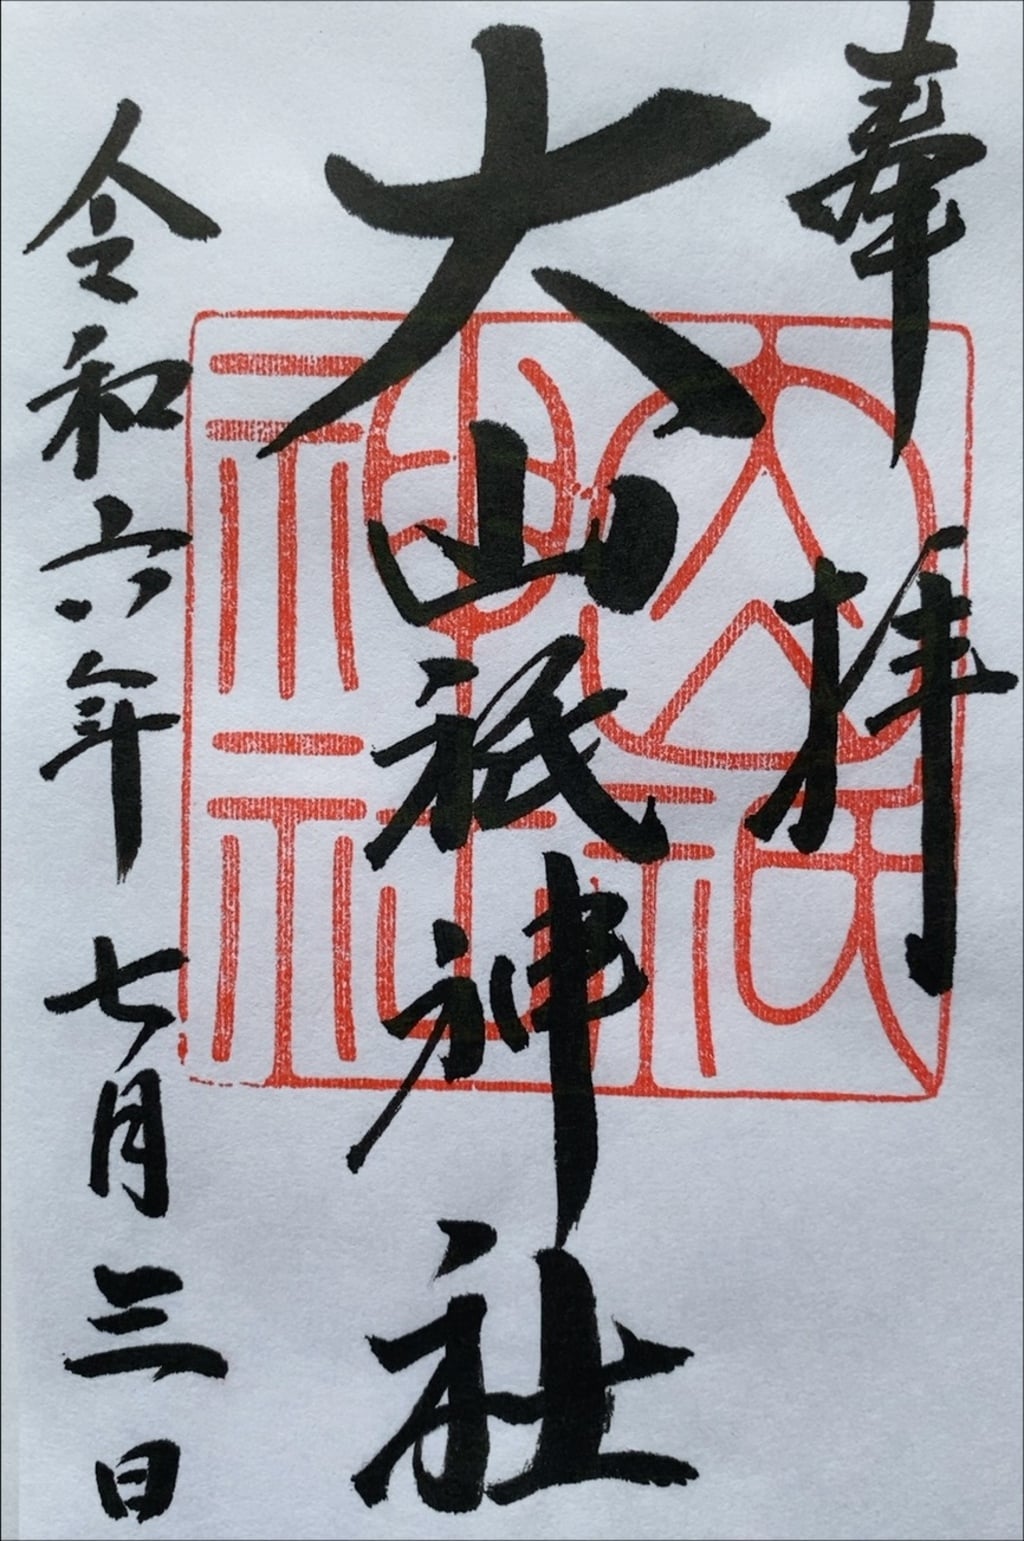 奉拝
大山祇神社
令和六年七月三日
大山祇神社